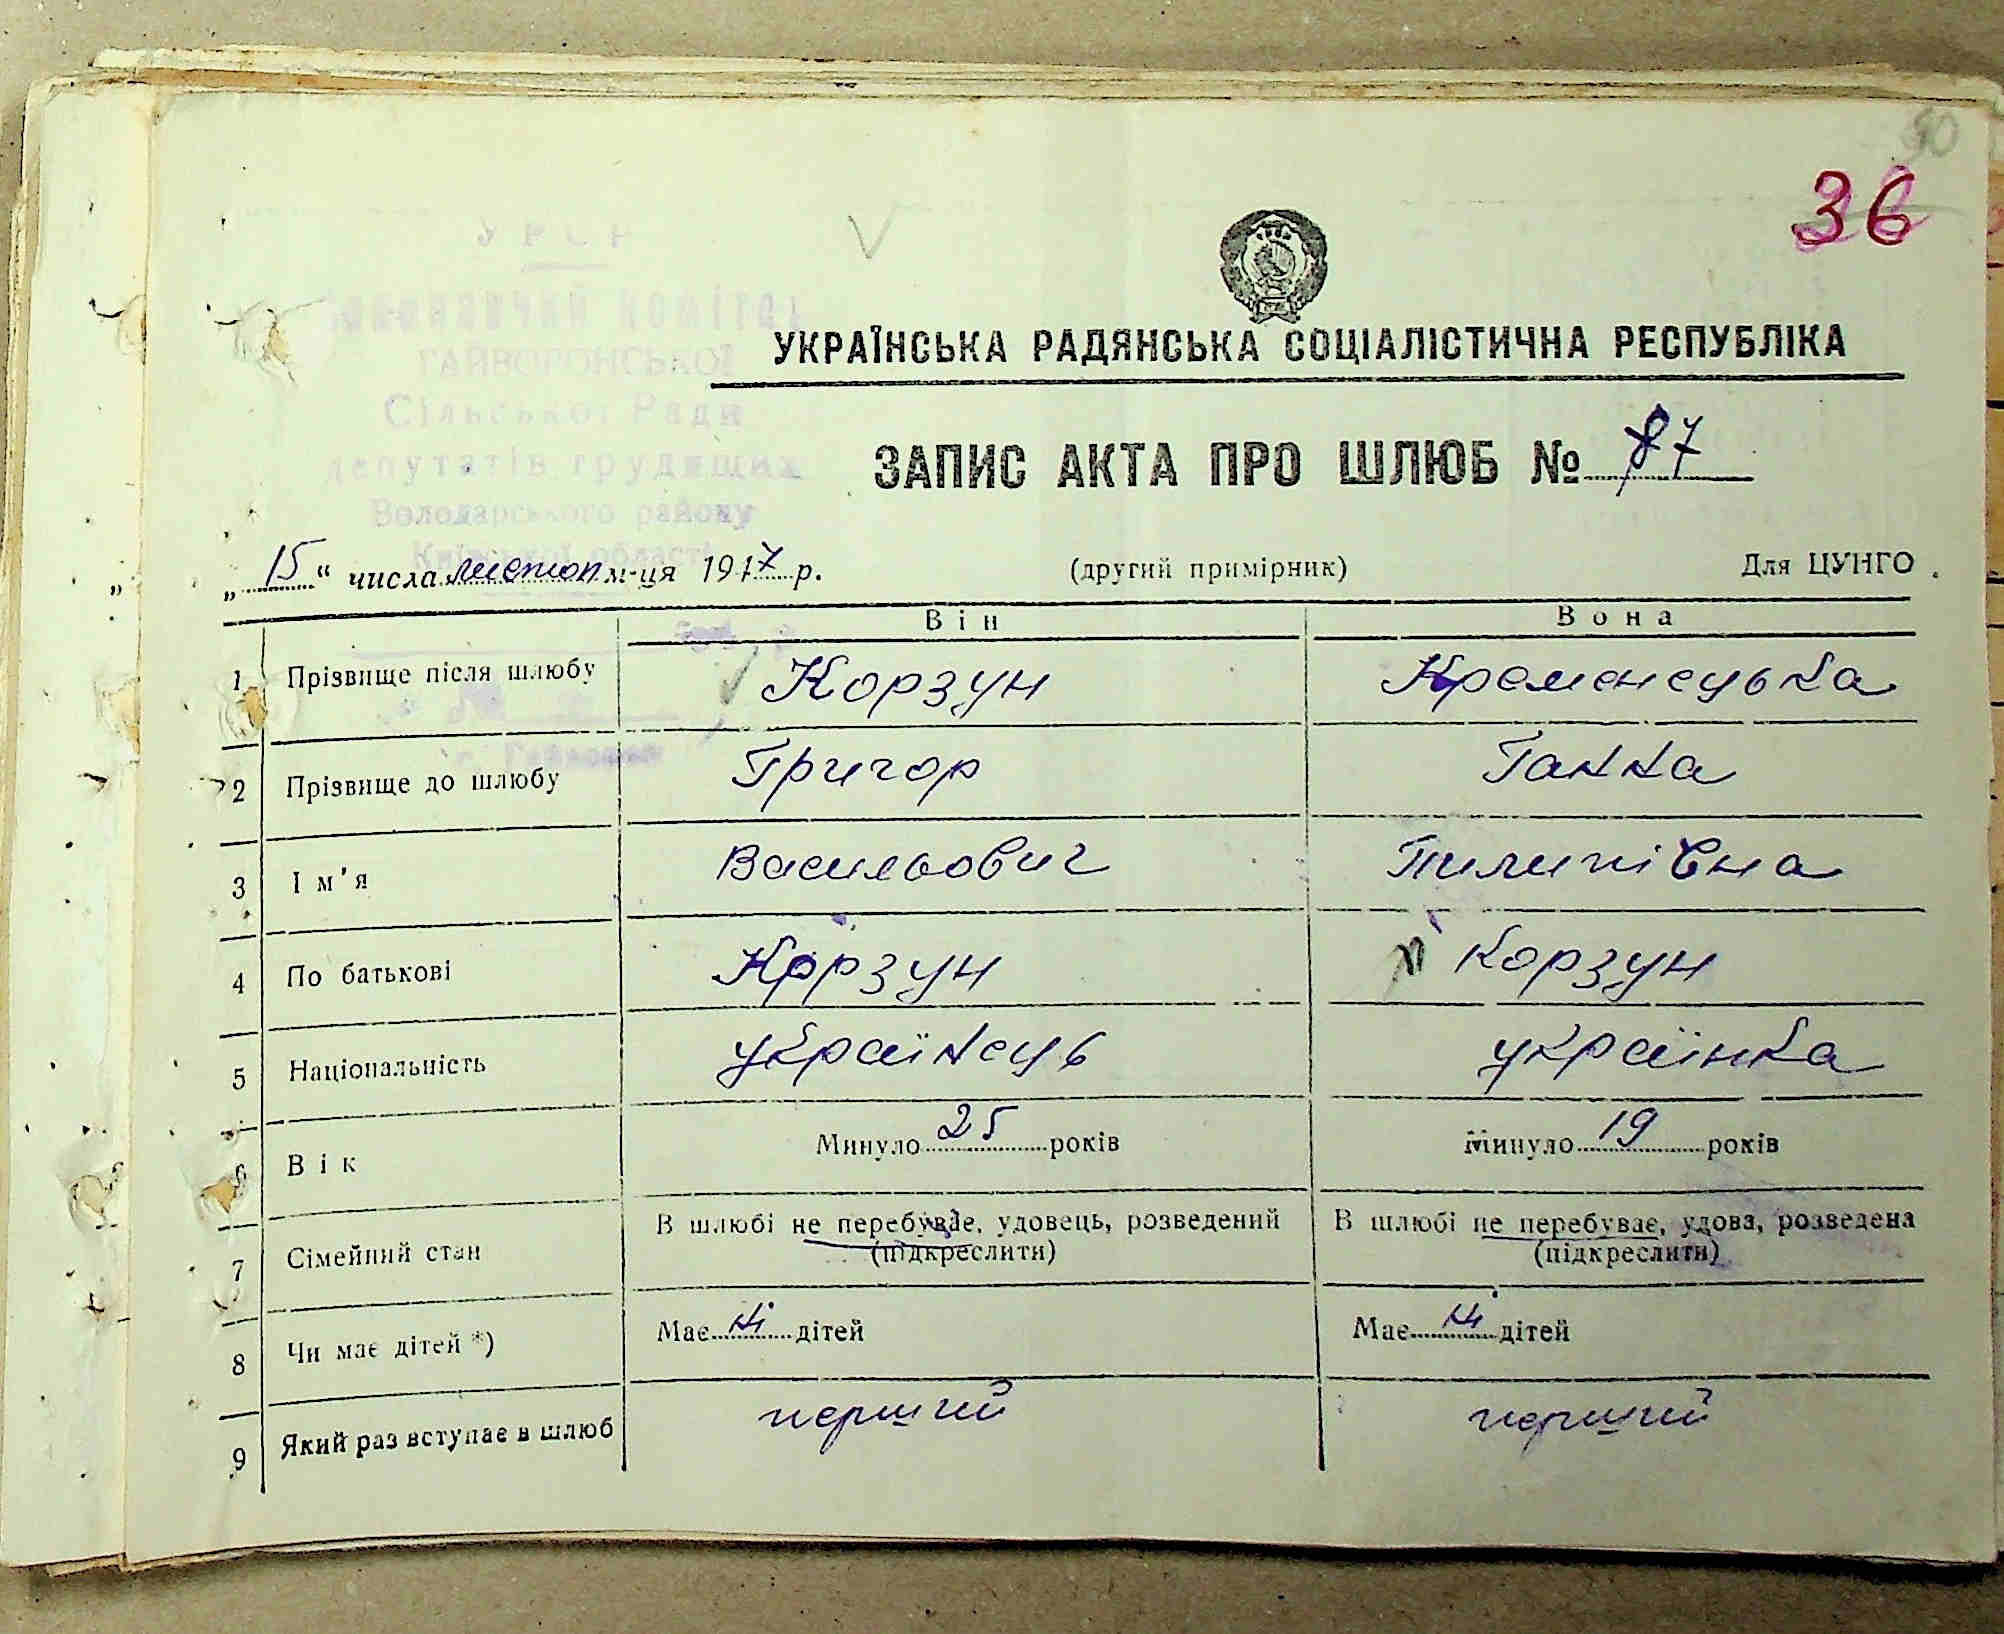 50
36
У Р С Р
Виконавчий комітет
ГАЙВОРОНСЬКОЇ
Сільської Ради
депутатів трудящих
Володарського району
Київської області
УКРАЇНСЬКА РАДЯНСЬКА СОЦІАЛІСТИЧНА РЕСПУБЛІКА
ЗАПИС АКТА ПРО ШЛЮБ № 87
„ 15 “ числа листоп м-ця 1947 р. (другий примірник) Для ЦУНГО
Він Вона
1 Прізвище після шлюбу Корзун Кременецька
2 Прізвище до шлюбу Григор Ганна
3 Ім'я Васильович Пилипівна
4 По батькові Корзун Корзун
5 Національність українець українка
6 Вік Минуло 25 років Минуло 19 років
7 Сімейний стан В шлюбі не перебуває, удовець, розведений (підкреслити) В шлюбі не перебуває, удова, розведена (підкреслити)
8 Чи має дітей *) Має ні дітей Має ні дітей
9 Який раз вступає в шлюб перший перший